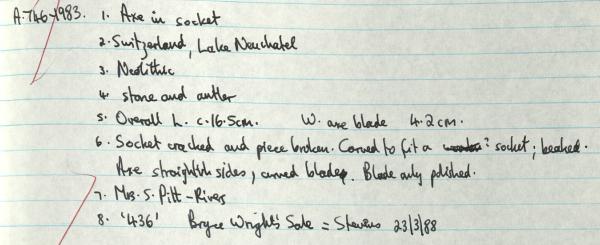 A.746-1983. 1. Axe in socket
2. Switzerland, Lake Neuchatel
3. Neolithic
4. stone and antler
5. Overall L. c.16.5cm. W. axe blade 4.2cm.
6. Socket cracked and piece broken. Carved to fit a ? socket; beaked.
Axe straightish sides, curved blade. Blade only polished.
7. Mrs. S. Pitt-Rivers
8. '436' Bryce Wright's Sale = Stevens 23/3/88